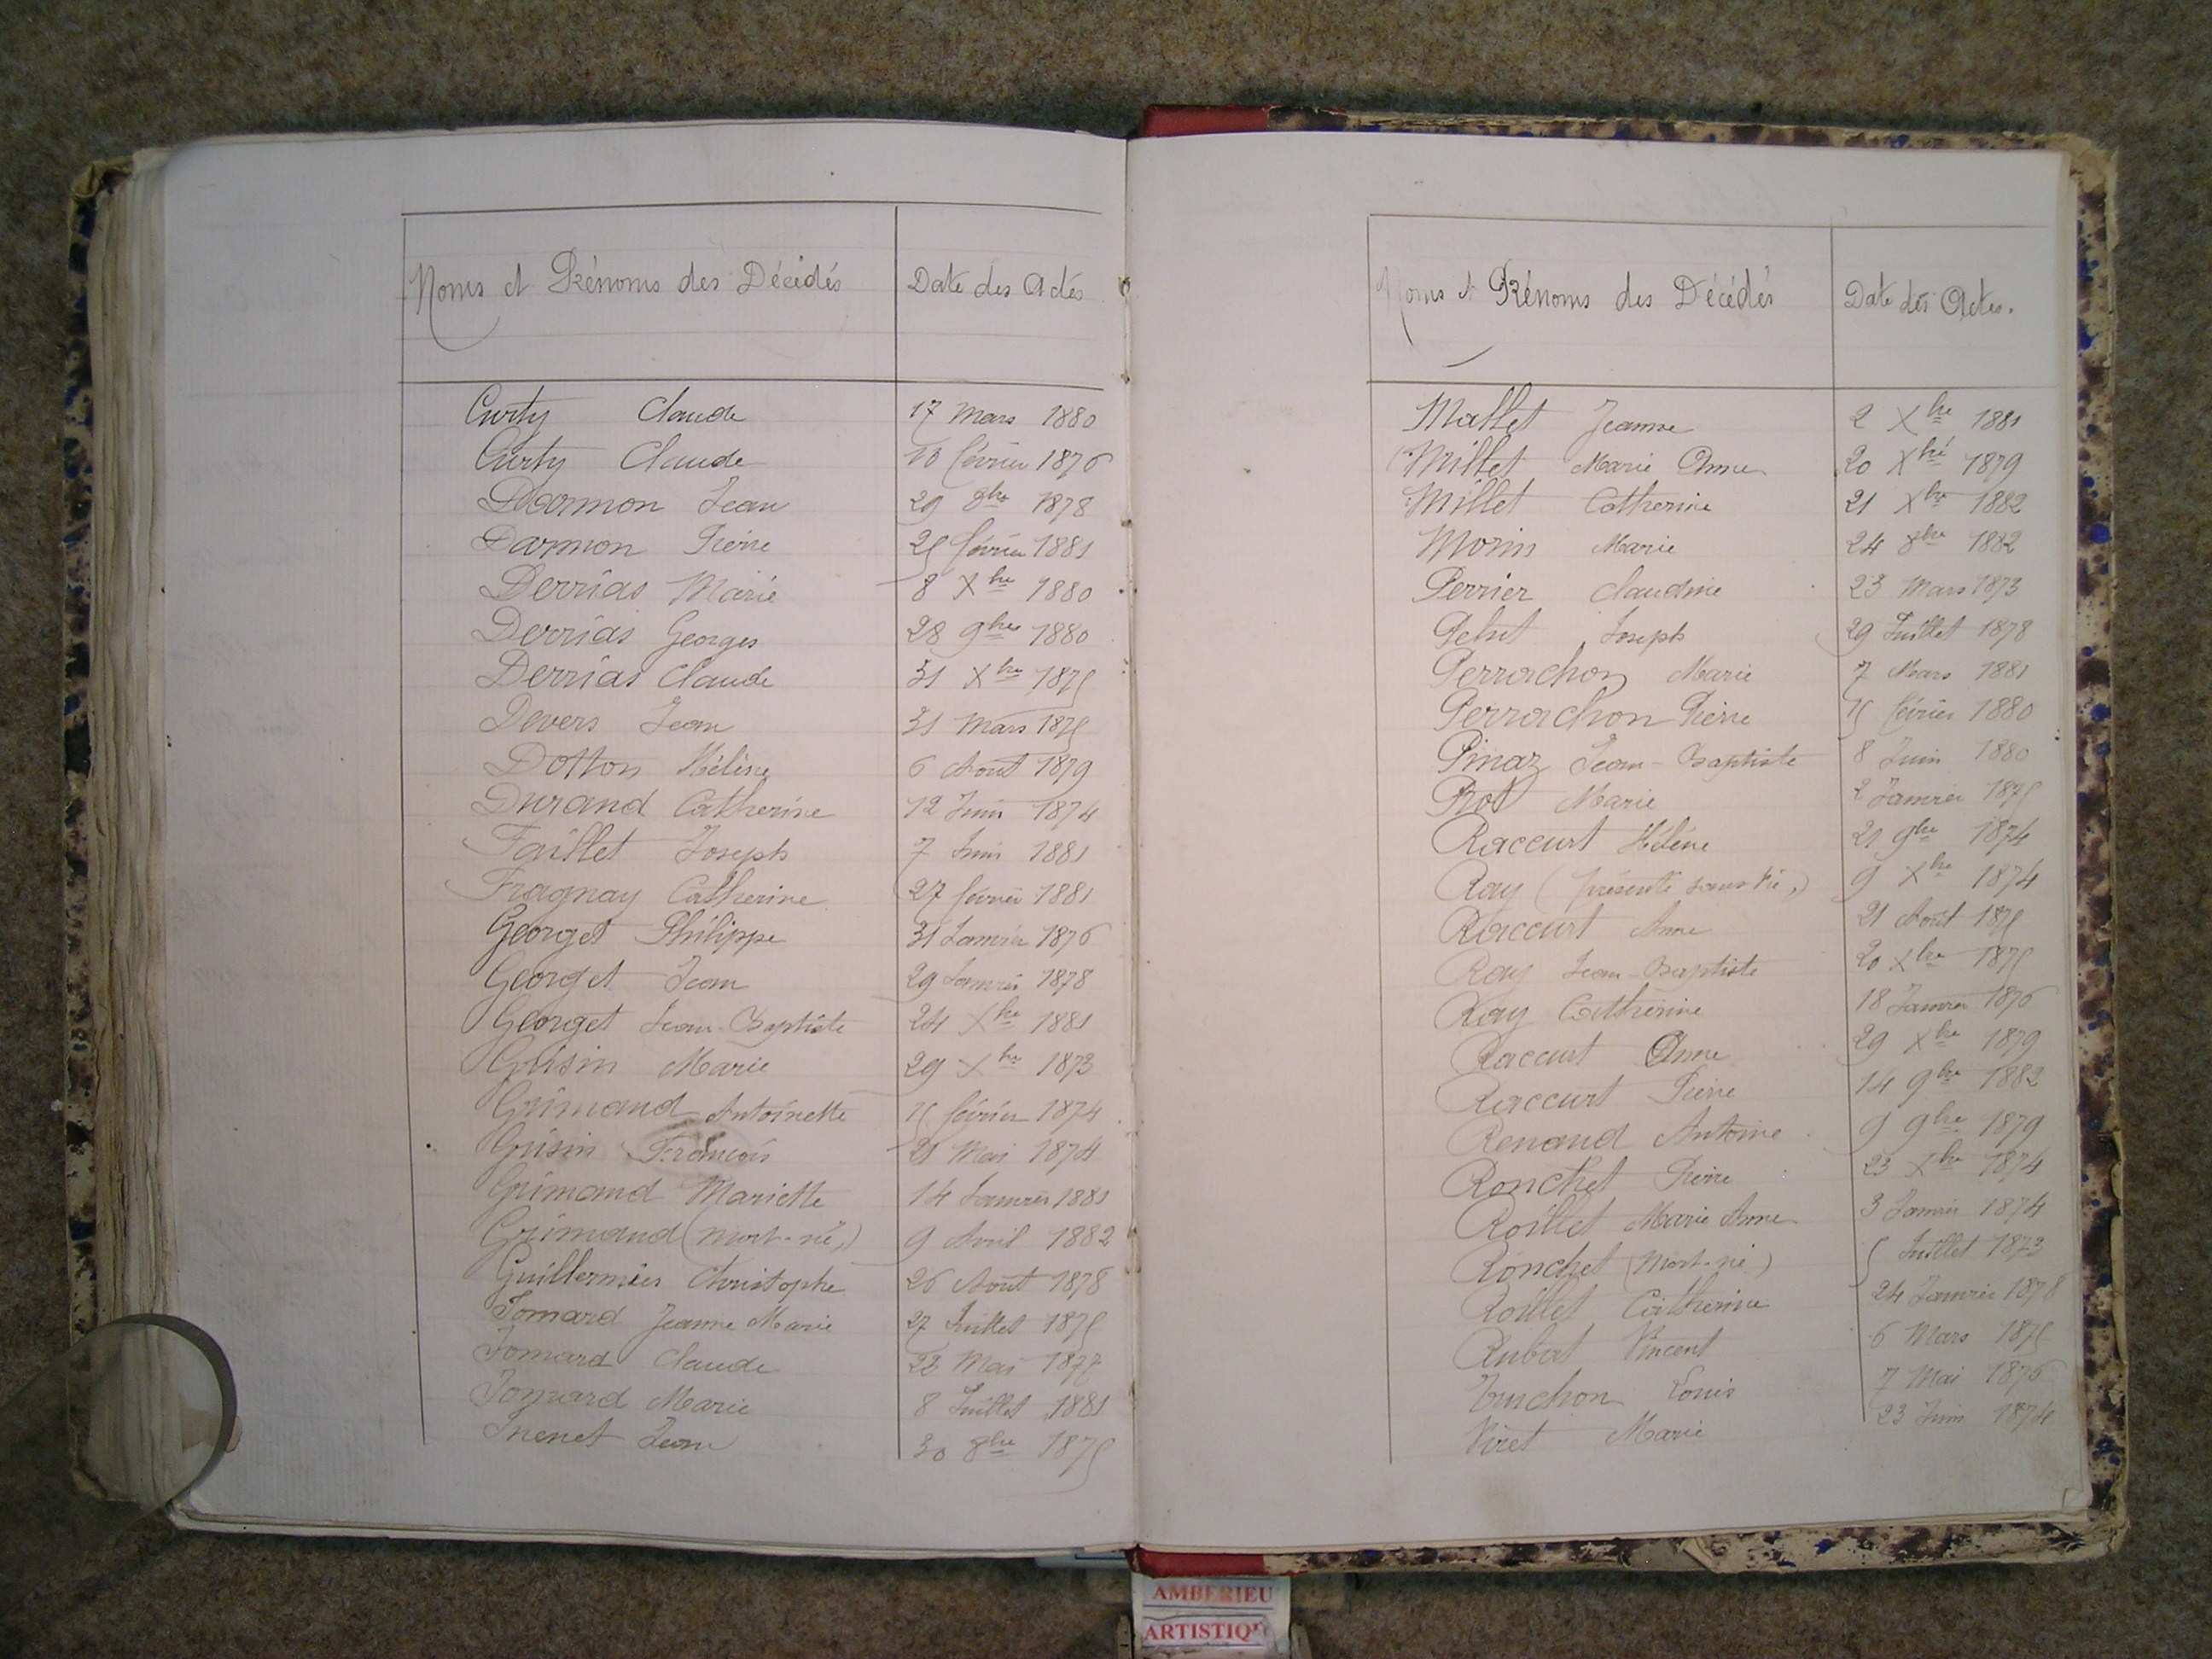 Noms et Prénoms des Décédés Date des Actes
Curty Claude 17 Mars 1880
Curty Claude 10 février 1876
Darmon Jean 29 8bre 1878
Darmon Pierre 25 février 1881
Derrias Marie 8 Xbre 1880
Derrias Georges 28 9bre 1880
Derrias Claude 31 Xbre 1875
Devers Jean 31 Mars 1875
Dotton Hélène 6 Aout 1879
Durand Catherine 12 Juin 1874
Faillet Joseph 7 Juin 1881
Fragnay Catherine 27 février 1881
Georget Philippe 31 Janvier 1876
Georget Jean 29 Janvier 1878
Georget Jean-Baptiste 24 Xbre 1881
Grisin Marie 29 Xbre 1873
Grimand Antoinette 15 février 1874
Grisin François 21 Mai 1874
Grimand Mariette 14 Janvier 1881
Grimand (mort-né,) 9 Avril 1882
Guillermier Christophe 26 Aout 1878
Jomard Jeanne Marie 27 Juillet 1875
Jomard Claude 22 Mai 1877
Jomard Marie 8 Juillet 1881
Jean 30 8bre 1875
Noms et Prénoms des Décédés Date des Actes.
Mallet Jeanne 2 Xbre 1881
Millet Marie Anne 20 Xbre 1879
Millet Catherine 21 Xbre 1882
Morin Marie 24 8bre 1882
Perrier Claudine 23 Mars 1873
Joseph 29 Juillet 1878
Perrachon Marie 7 Mars 1881
Perrachon Pierre 15 février 1880
Pinaz Jean-Baptiste 8 Juin 1880
Marie 2 Janvier 1875
Raccurt Hélène 21 9bre 1874
Ray (présenté sans vie,) 9 Xbre 1874
Raccurt Anne 21 Août 1875
Ray Jean-Baptiste 20 Xbre 1875
Ray Catherine 18 Janvier 1876
Raccurt Anne 29 Xbre 1879
Raccurt Pierre 14 9bre 1882
Renaud Antoine 9 9bre 1879
Ronchet Pierre 23 Xbre 1874
Roillet Marie Anne 3 Janvier 1874
Ronchet (Mort-né) 5 Juillet 1873
Roillet Catherine 24 Janvier 1878
Rubat Vincent 6 Mars 1875
Truchon Louis 7 Mai 1876
Viret Marie 23 Juin 1874
AMBERIEU
ARTISTIQ